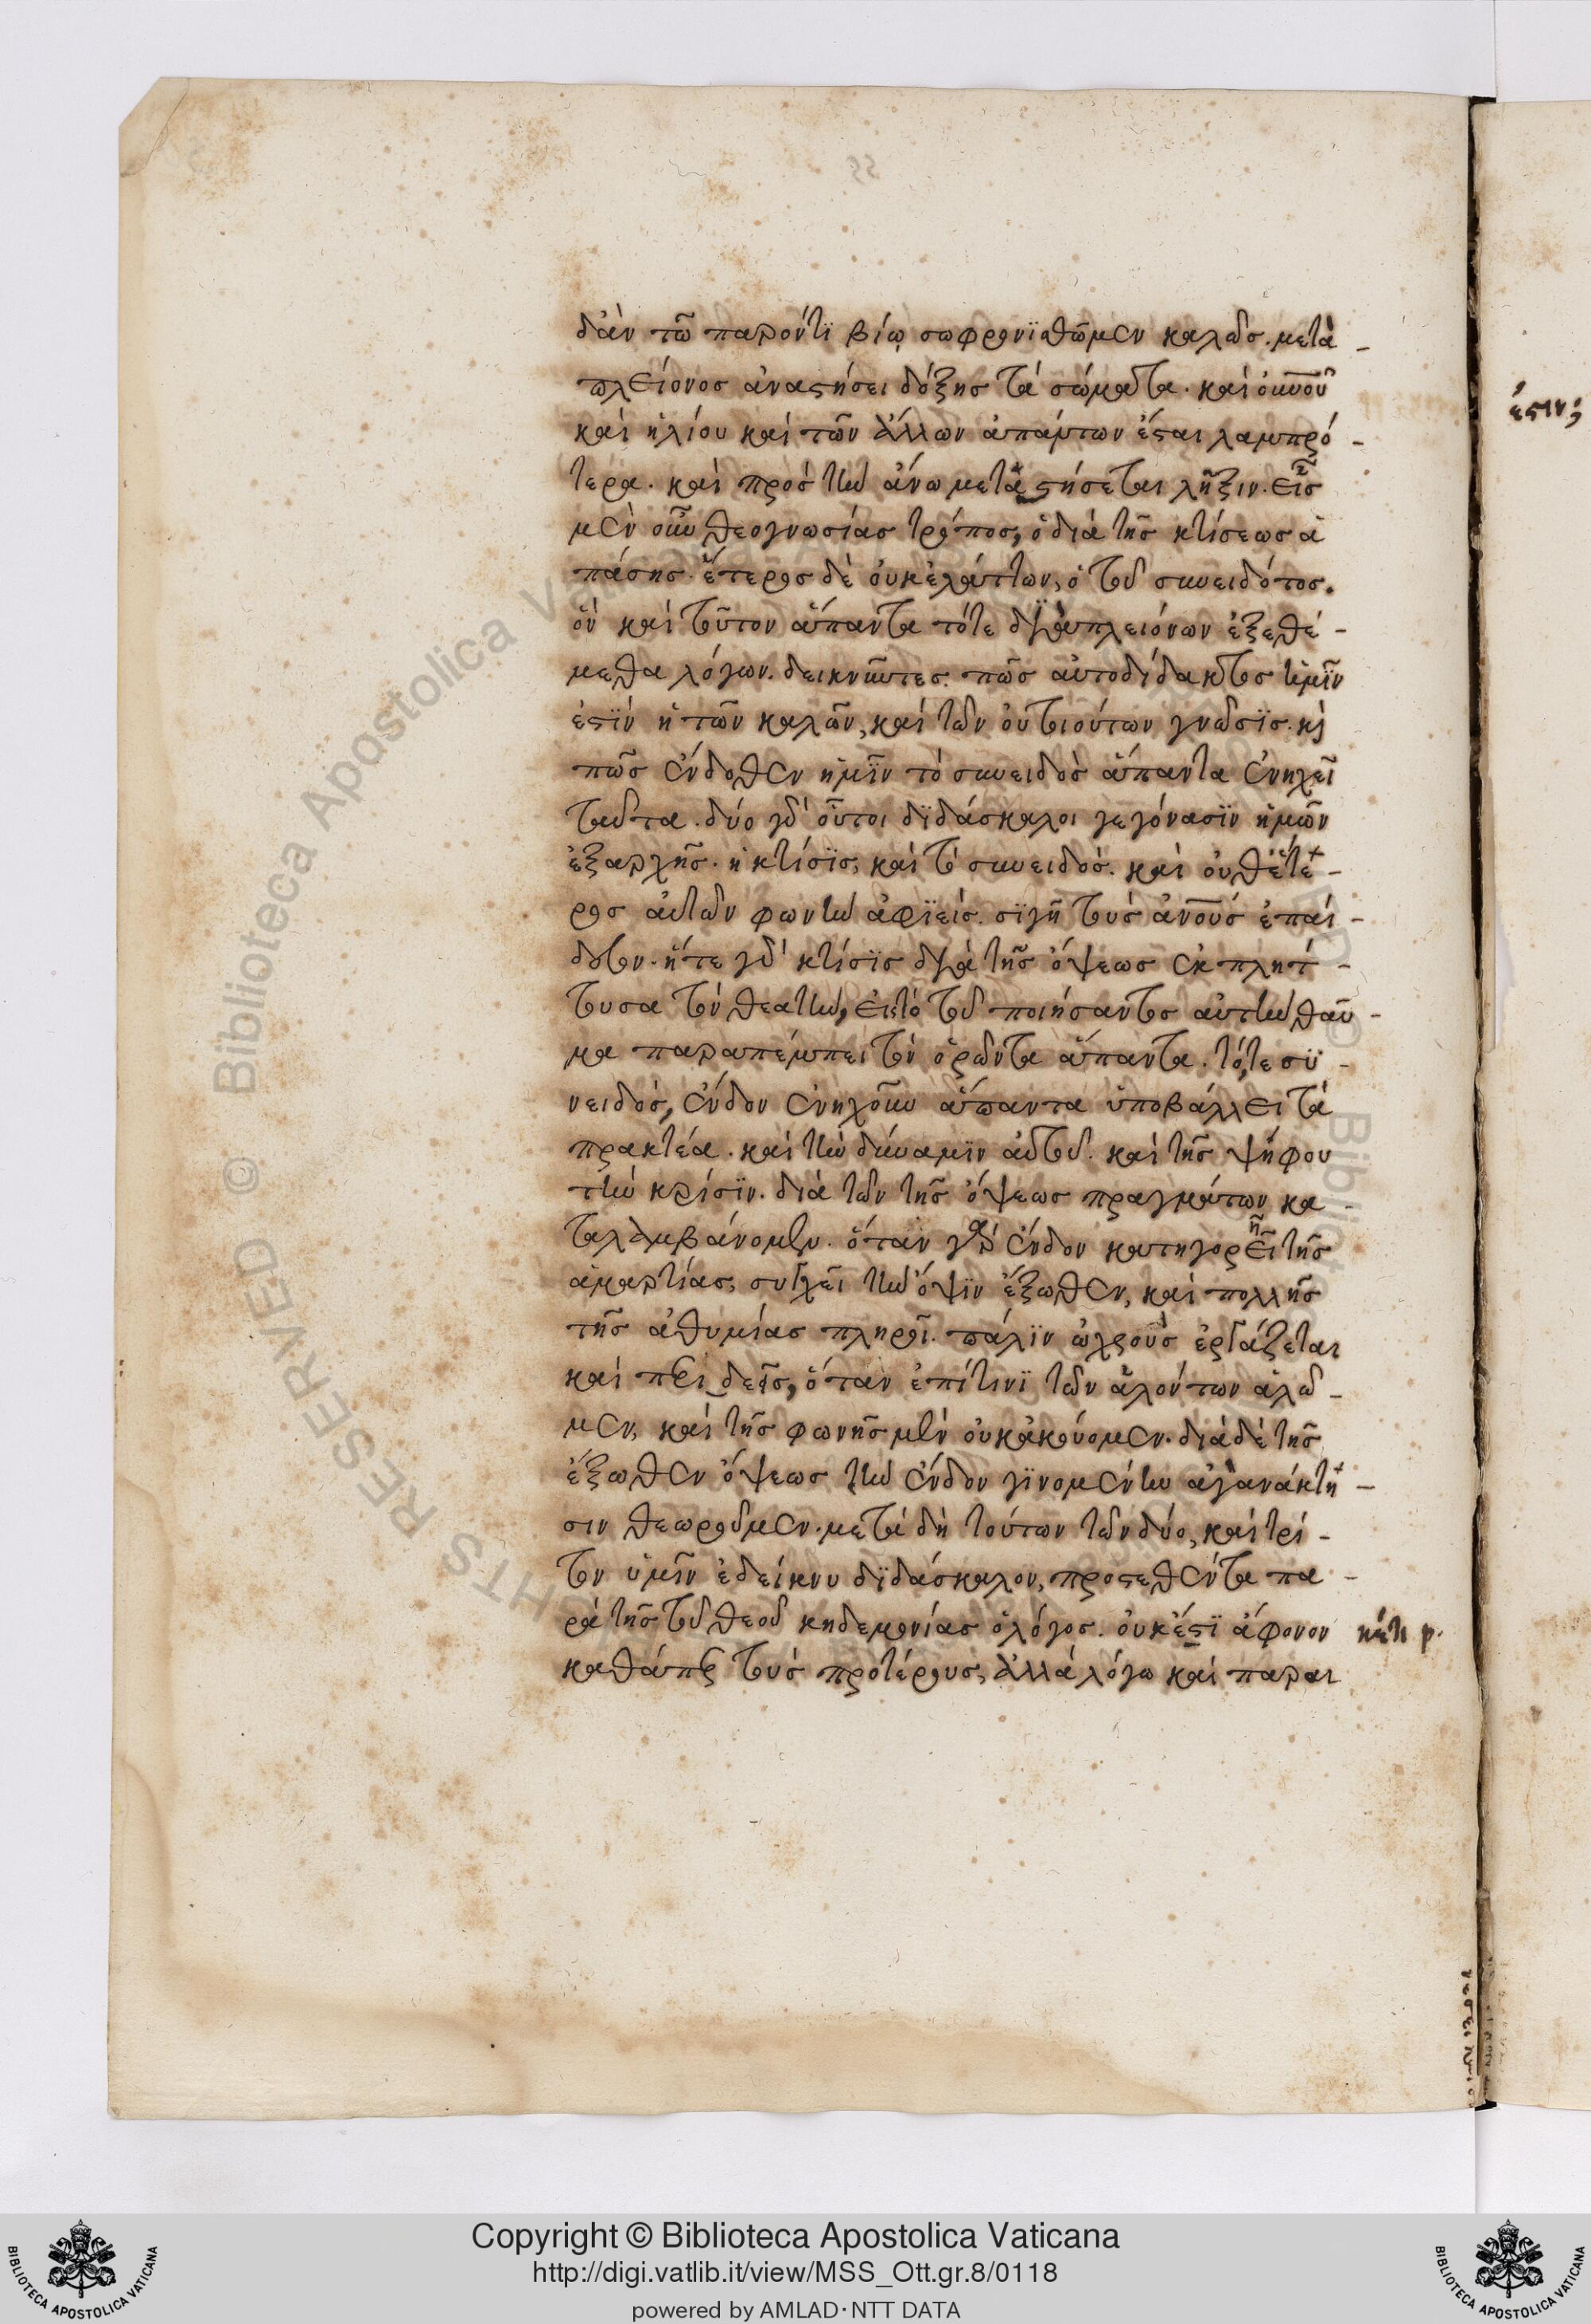 δὰν τῶ παρόντϊ βίῳ σωφρονϊσθῶμεν καλῶσ. μετὰ
πλείονοσ ἀναστήσει δόξησ τὰ σώματα. καὶ οὐνοῦ
καὶ ἡλίου καὶ τῶν ἄλλων ἁπάντων ἔσται λαμπρό-
τερα. καὶ πρὸσ τὴν ἄνω μεταστήσεται λῆξιν. εἷσ
μὲν οὖν θεογνωσίας τρόποσ, ὁ διὰ τῆσ κτίσεωσ ἁ
πάσησ. ἕτεροσ δὲ οὐκ ἐλάττων, ὁ τοῦ συνειδότοσ.
ὃν καὶ τοῦτον ἅπαντα τότε διὰ πλειόνων ἐξεθέ-
μεθα λόγων. δεικνῦντεσ. πῶσ αὐτοδίδακτοσ ἡμῖν
ἐστϊν ἡ τῶν καλῶν, καὶ τῶν οὐ τοιούτων γνῶσϊσ. κὶ
πῶσ ἔνδοθεν ἡμῖν τὸ συνειδὸσ ἅπαντα ἐνηχεῖ
ταῦτα. δύο γὰρ οὗτοι δϊδάσκαλοι γεγόνασϊν ἡμῶν
ἐξαρχῆσ. ἡ κτίσϊσ, καὶ τὸ συνειδόσ. καὶ οὐθέτέ-
ροσ αὐτῶν φωνὴν ἀφϊεὶσ. σϊγῆ τοὺσ ἀνοὺσ ἐπαί-
δευον. ἥτε γὰρ κτίσϊσ διὰ τῆσ ὄψεωσ ἐκπλήτ-
τουσα τὸν θεατὴν, εἰς τὸ τοῦ ποιήσαντοσ αὐτὴν θαῦ-
μα παραπέμπει τὸν ὁρῶντα ἅπαντα. τό,τε σϋ-
νειδόσ, ἔνδον ἐνηχοῦν ἅπαντα ὑποβάλλει τὰ
πρακτέα. καὶ τὴν δύναμϊν αὐτοῦ. καὶ τῆσ ψήφου
τὴν κρίσϊν. διὰ τῶν τῆσ ὄψεωσ πραγμάτων κα-
ταλαμβάνομεν. ὅταν γὰρ ἔνδον κατηγορεῖ τῆσ
ἁμαρτίασ, συγχεῖ τὴν ὄψϊν ἔξωθεν, καὶ πολλῆσ
τῆσ ἀθυμίασ πληροῖ. πάλϊν ὠχροὺσ ἐργάζεται
καὶ περιδεεῖσ, ὅταν ἐπίτινϊ τῶν ἁλόντων ἁλῶ-
μεν, καὶ τῆσ φωνῆσ μὲν οὐκ ἀκούομεν. διὰ δὲ τῆσ
ἔξωθεν ὄψεωσ τὴν ἔνδον γϊνομένην ἀγανάκτη-
σιν θεωροῦμεν. μετὰ δὴ τούτων τῶν δύο, καὶ τρί-
τον ὑμῖν ἐδείκνυ δϊδάσκαλον, προστεθέντα πα-
ρὰ τῆσ τοῦ θεοῦ κηδεμονίασ ὁ λόγοσ. οὐκ ἔστϊ ἄφονον
καθάπερ τοὺσ προτέρουσ, ἀλλὰ λόγω καὶ παραι
ἐστιν;